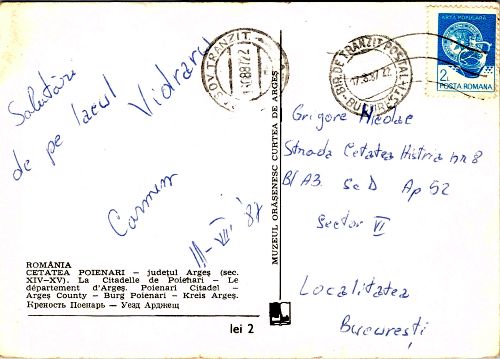 Salutări
de pe lacul Vidraru
Carmen
11-VIII '87
ROMÂNIA
CETATEA POIENARI – județul Argeș (sec.
XIV–XV). La Citadelle de Poienari – Le
département d'Argeș. Poienari Citadel –
Argeș County – Burg Poienari – Kreis Argeș.
Крепость Поенарь — Уезд Арджеш
lei 2
MUZEUL ORĂȘENESC CURTEA DE ARGEȘ
BIR. DE TRANZIT POSTAL
BUCUREȘTI
ARTA POPULARA
2L
POSTA ROMANA
Grigore Nicolae
Strada Cetatea Histria nr 8
Bl A3 Sc D Ap 52
Sector VI
Localitatea
București